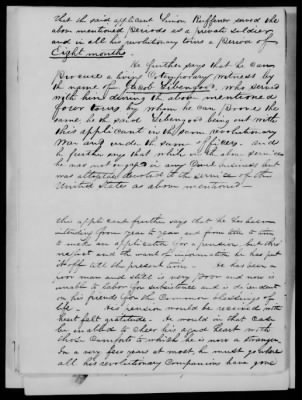 that the said applicant Simon Ruffner served the
above mentioned periods as a private soldier
and in all his revolutionary tours a Period of
Eight months.
He further says that he can
Procure a living Cotemporary witness by
the name of Jacob Lebengood, who served
with him during the above mentioned
four tours by whom he can Prove the
same, he the said Lebengood being out with
this applicant in the same revolutionary
War and under the same officers. And
he further says that while in the above service
he was not engaged in any Civil business but
was altogether devoted to the service of the
United States as above mentioned —
this applicant further says that he has been
intending from year to year and from time to time
to make an application for a pension but thro
neglect and the want of information he has put
it off till the present time. He has been a
poor man and still is very Poor and now is
unable to labor for subsistence and is dependent
on his friends for the Common blessings of
life. His Pension would be received with
heart felt gratitude. He would in that Case
be enabled to Cheer his aged heart with
those Comforts to which he is now a stranger.
In a very few years at most he must go where
all his revolutionary Companions have gone